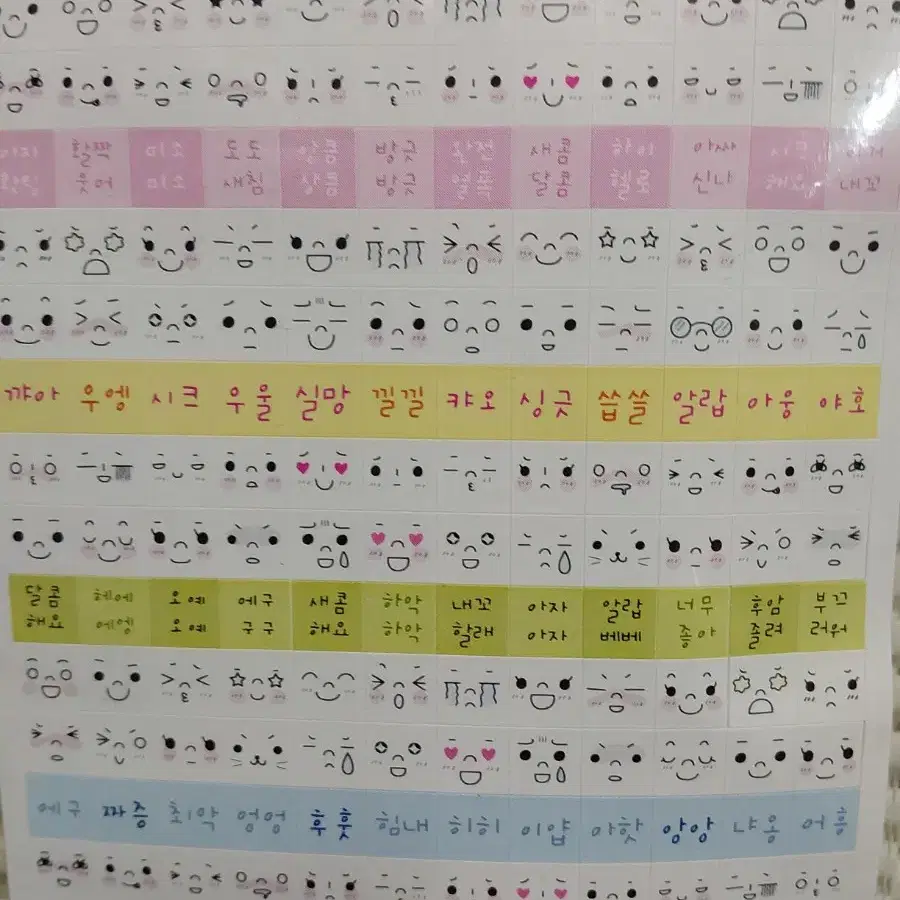 활짝 미소 도도 상콤 방긋 완전 새콤 하이 아싸 시크
웃어 미소 새침 상콤 방긋 열폭 달콤 헬로 신나 해요 내꼬
꺄아 우엥 시크 우울 실망 낄낄 캬오 싱긋 씁쓸 알랍 아웅 야호
달콤 헤에 오예 에구 새콤 하악 내꼬 아자 알랍 너무 후암 부끄
해요 에엥 오예 구구 해요 하악 할래 아자 베베 좋아 졸려 러워
에구 짜증 최악 엉엉 훗훗 힘내 히히 이얍 아핫 앙앙 냐옹 어흥